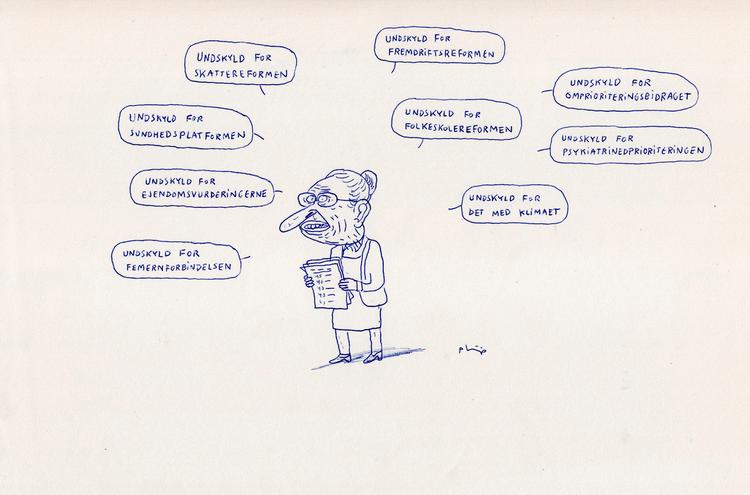 UNDSKYLD FOR
SKATTEREFORMEN
UNDSKYLD FOR
FREMDRIFTSREFORMEN
UNDSKYLD FOR
OMPRIORITERINGSBIDRAGET
UNDSKYLD FOR
SUNDHEDSPLATFORMEN
UNDSKYLD FOR
FOLKESKOLEREFORMEN
UNDSKYLD FOR
PSYKIATRINEDPRIORITERINGEN
UNDSKYLD FOR
EJENDOMSVURDERINGERNE
UNDSKYLD FOR
DET MED KLIMAET
UNDSKYLD FOR
FEMERNFORBINDELSEN